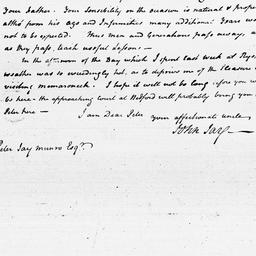 Your Father. Your Sensibility on the occasion is natural & proper
from his Age and Infirmities many additional Years were
not to be expected. Thus Men and Generations pass away, a
as they pass, teach useful Lessons —
In the aftn. noon of the Day which I spent last week at Rye,
weather was so exceedingly hot, as to deprive me of the Pleasure
visiting Mamaroneck. I hope it will not be long before you w
us here — the approaching court at Bedford will probably bring you
Peter here —
I am Dear Peter your affectionate uncle
John Jay —
Peter Jay Munro Esqr.